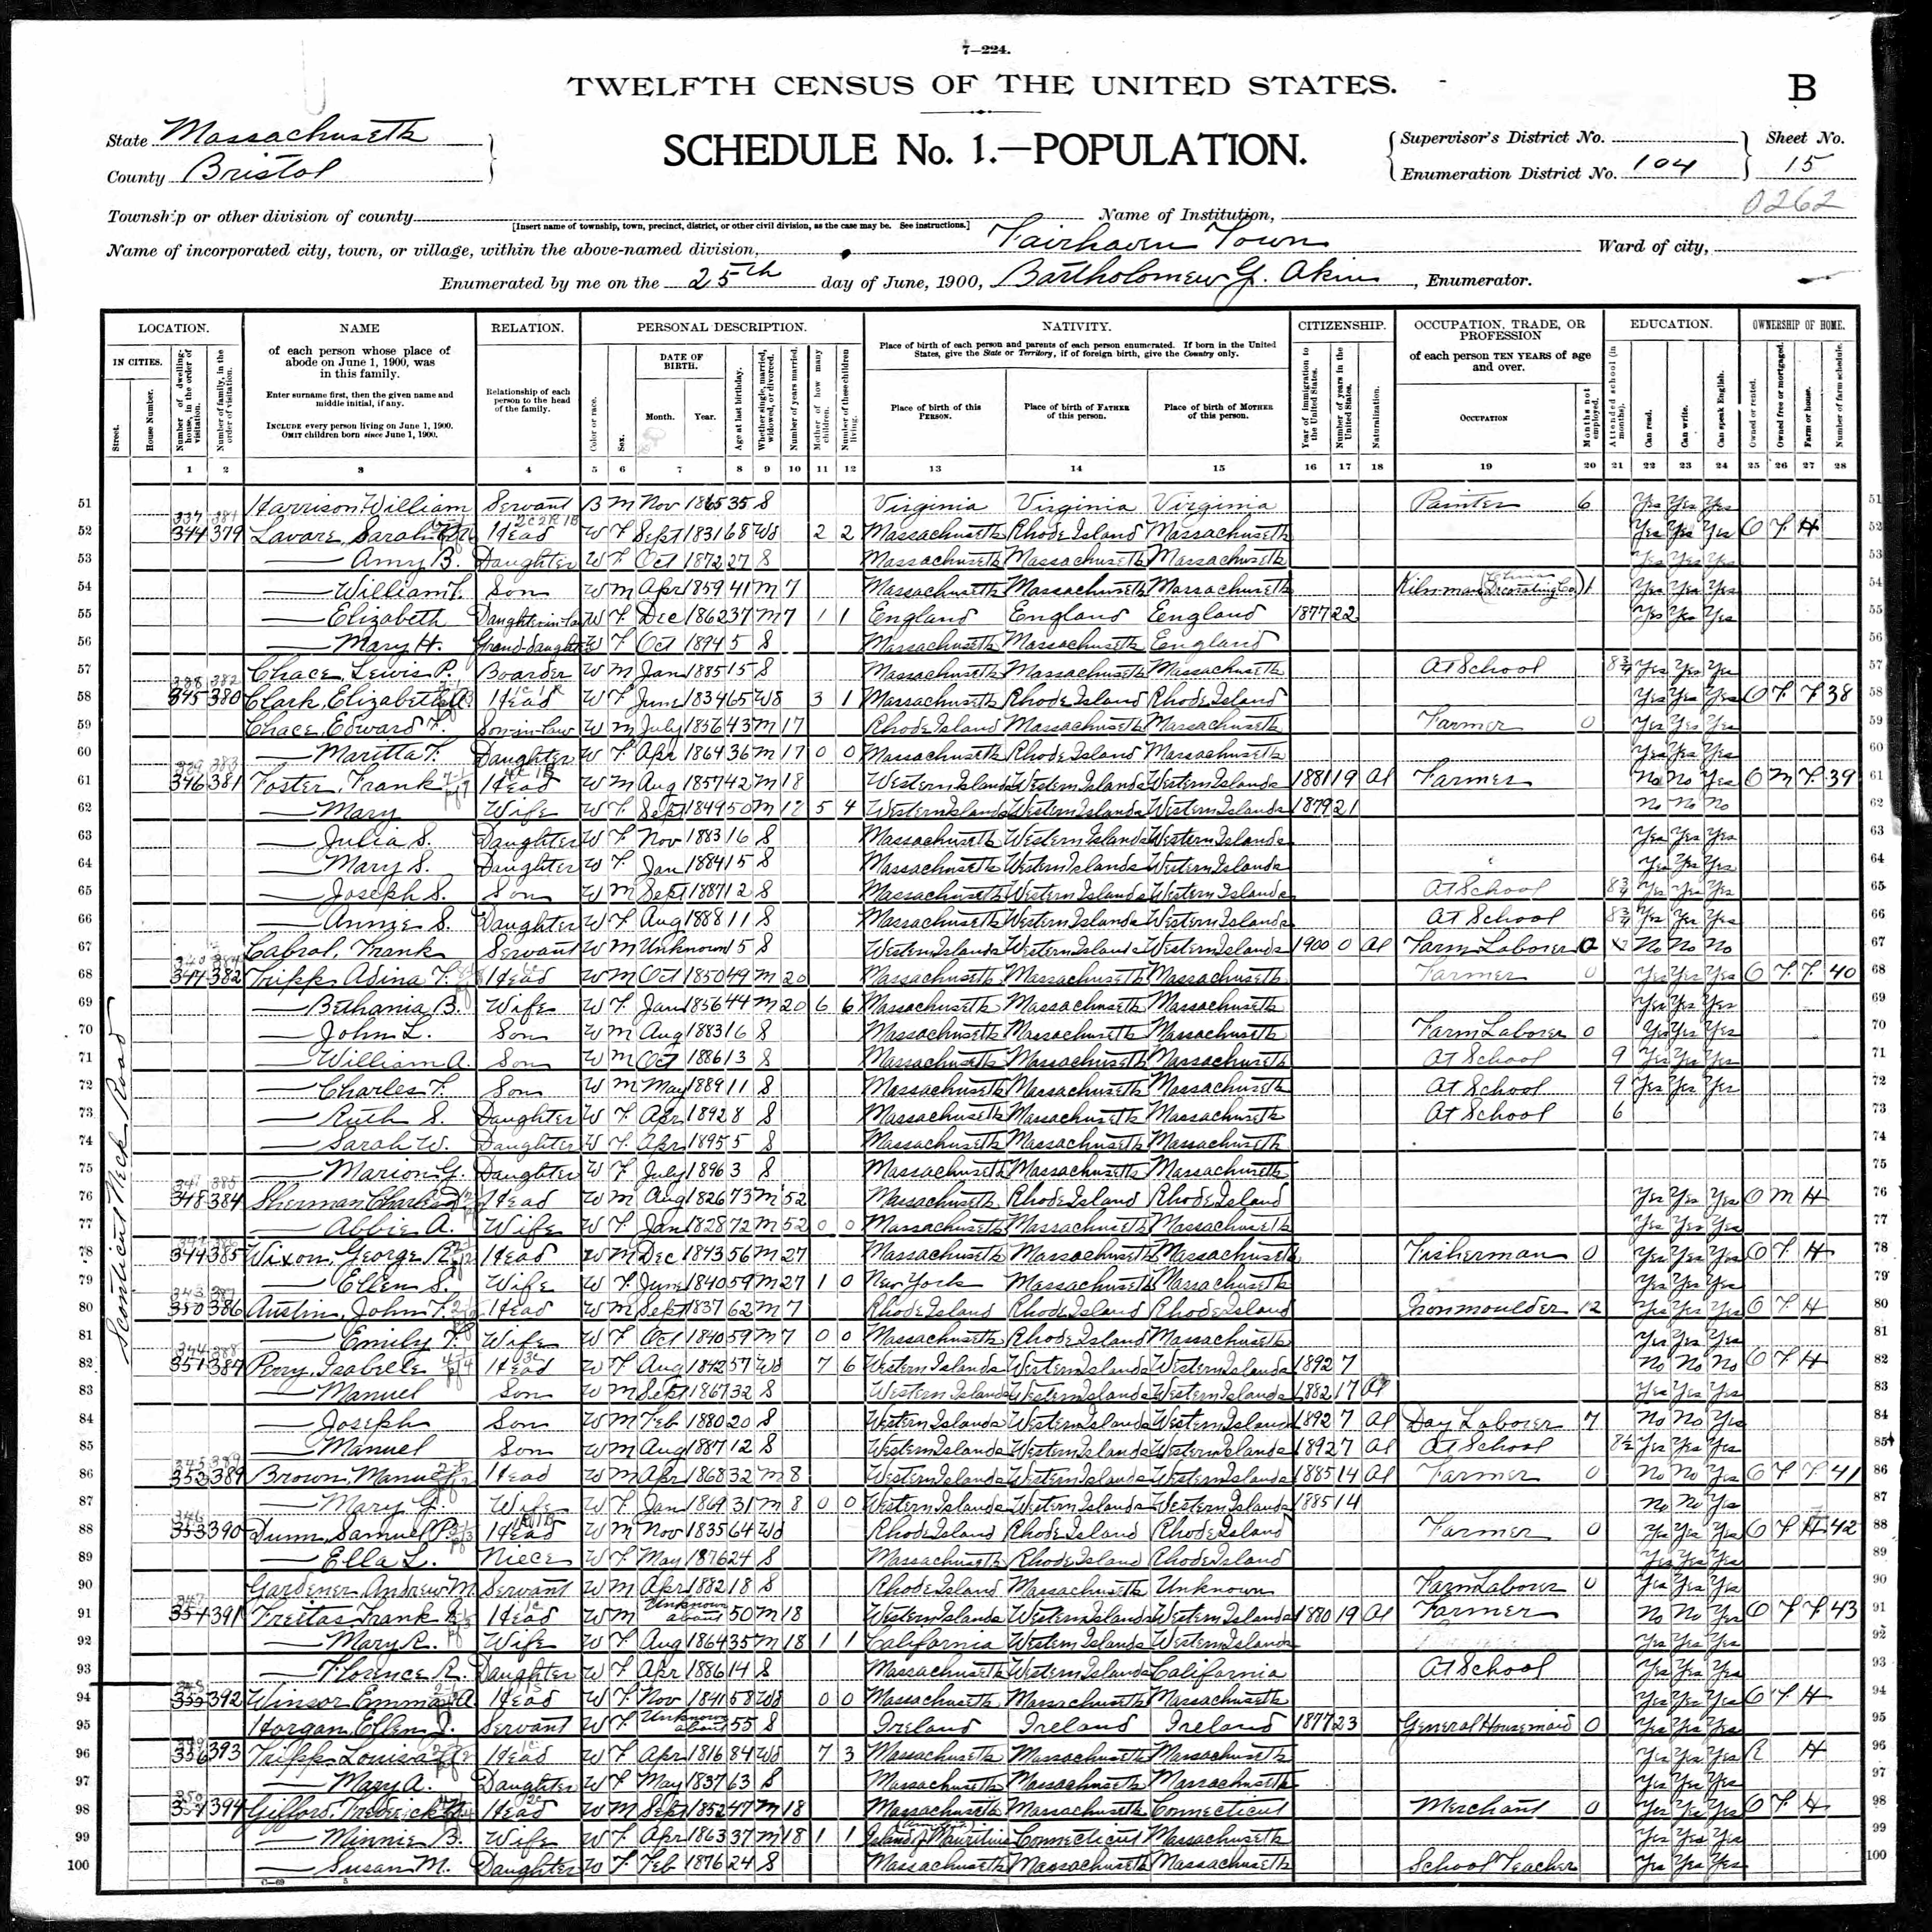 7—224.
TWELFTH CENSUS OF THE UNITED STATES.
B
State Massachusetts
County Bristol
SCHEDULE No. 1.—POPULATION.
Supervisor's District No.
Enumeration District No. 104
Sheet No.
15
0262
Township or other division of county
[Insert name of township, town, precinct, district, or other civil division, as the case may be. See instructions.]
Name of Institution,
Name of incorporated city, town, or village, within the above-named division, Fairhaven Town
Ward of city,
Enumerated by me on the 25th day of June, 1900, Bartholomew G. Akin, Enumerator.
LOCATION. NAME RELATION. PERSONAL DESCRIPTION. NATIVITY. CITIZENSHIP. OCCUPATION, TRADE, OR PROFESSION EDUCATION. OWNERSHIP OF HOME.
IN CITIES. Street. House Number. Number of dwelling-house, in the order of visitation. Number of family, in the order of visitation.
of each person whose place of abode on June 1, 1900, was in this family.
Enter surname first, then the given name and middle initial, if any.
INCLUDE every person living on June 1, 1900.
OMIT children born since June 1, 1900.
Relationship of each person to the head of the family.
Color or race. Sex. DATE OF BIRTH. Month. Year. Age at last birthday. Whether single, married, widowed, or divorced. Number of years married. Mother of how many children. Number of these children living.
Place of birth of each person and parents of each person enumerated. If born in the United States, give the State or Territory, if of foreign birth, give the Country only.
Place of birth of this PERSON. Place of birth of FATHER of this person. Place of birth of MOTHER of this person.
Year of immigration to the United States. Number of years in the United States. Naturalization.
of each person TEN YEARS of age and over.
OCCUPATION Months not employed.
Attended school (in months). Can read. Can write. Can speak English.
Owned or rented. Owned free or mortgaged. Farm or house. Number of farm schedule.
1 2 3 4 5 6 7 8 9 10 11 12 13 14 15 16 17 18 19 20 21 22 23 24 25 26 27 28
Sconticut Neck Road
51 Harrison William Servant B M Nov 1865 35 S Virginia Virginia Virginia Painter 6 Yes Yes Yes 51
52 344 379 Lavare, Sarah Head W F Sept 1831 68 Wd 2 2 Massachusetts Rhode Island Massachusetts Yes Yes Yes O F H 52
53 — Amy B. Daughter W F Oct 1872 27 S Massachusetts Massachusetts Massachusetts Yes Yes Yes 53
54 — William F. Son W M Apr 1859 41 M 7 Massachusetts Massachusetts Massachusetts Kilnman Decorating Co. 1 Yes Yes Yes 54
55 — Elizabeth Daughter-in-law W F Dec 1862 37 M 7 1 1 England England England 1877 22 Yes Yes Yes 55
56 — Mary H. Grand-daughter W F Oct 1894 5 S Massachusetts Massachusetts England 56
57 Chace, Lewis P. Boarder W M Jan 1885 15 S Massachusetts Massachusetts Massachusetts At School 8¾ Yes Yes Yes 57
58 345 380 Clark, Elizabeth Head W F June 1834 65 Wd 3 1 Massachusetts Rhode Island Rhode Island Yes Yes Yes O F F 38 58
59 Chace, Edward F. Son-in-law W M July 1856 43 M 17 Rhode Island Massachusetts Massachusetts Farmer 0 Yes Yes Yes 59
60 — Maritta F. Daughter W F Apr 1864 36 M 17 0 0 Massachusetts Rhode Island Massachusetts Yes Yes Yes 60
61 346 381 Foster, Frank Head W M Aug 1857 42 M 18 Western Islands Western Islands Western Islands 1881 19 Al Farmer No No Yes O M F 39 61
62 — Mary Wife W F Sept 1849 50 M 18 5 4 Western Islands Western Islands Western Islands 1879 21 No No No 62
63 — Julia S. Daughter W F Nov 1883 16 S Massachusetts Western Islands Western Islands Yes Yes Yes 63
64 — Mary S. Daughter W F Jan 1884 15 S Massachusetts Western Islands Western Islands Yes Yes Yes 64
65 — Joseph S. Son W M Sept 1887 12 S Massachusetts Western Islands Western Islands At School 8¾ Yes Yes Yes 65
66 — Annie S. Daughter W F Aug 1888 11 S Massachusetts Western Islands Western Islands At School 8¾ Yes Yes Yes 66
67 Cabrol, Frank Servant W M Unknown 15 S Western Islands Western Islands Western Islands 1900 0 Al Farm Laborer 0 No No No 67
68 347 382 Tripp, Adina F. Head W M Oct 1850 49 M 20 Massachusetts Massachusetts Massachusetts Farmer 0 Yes Yes Yes O F F 40 68
69 — Bethania B. Wife W F Jan 1856 44 M 20 6 6 Massachusetts Massachusetts Massachusetts Yes Yes Yes 69
70 — John L. Son W M Aug 1883 16 S Massachusetts Massachusetts Massachusetts Farm Laborer 0 Yes Yes Yes 70
71 — William A. Son W M Oct 1886 13 S Massachusetts Massachusetts Massachusetts At School 9 Yes Yes Yes 71
72 — Charles F. Son W M May 1889 11 S Massachusetts Massachusetts Massachusetts At School 9 Yes Yes Yes 72
73 — Ruth S. Daughter W F Apr 1892 8 S Massachusetts Massachusetts Massachusetts At School 6 73
74 — Sarah W. Daughter W F Apr 1895 5 S Massachusetts Massachusetts Massachusetts 74
75 — Marion G. Daughter W F July 1896 3 S Massachusetts Massachusetts Massachusetts 75
76 348 384 Sherman, Charles Head W M Aug 1826 73 M 52 Massachusetts Rhode Island Rhode Island Yes Yes Yes O M H 76
77 — Abbie A. Wife W F Jan 1828 72 M 52 0 0 Massachusetts Massachusetts Massachusetts Yes Yes Yes 77
78 344 385 Wixon, George R. Head W M Dec 1843 56 M 27 Massachusetts Massachusetts Massachusetts Fisherman 0 Yes Yes Yes O F H 78
79 — Ellen S. Wife W F June 1840 59 M 27 1 0 New York Massachusetts Massachusetts Yes Yes Yes 79
80 350 386 Austin, John F. Head W M Sept 1837 62 M 7 Rhode Island Rhode Island Rhode Island Ironmoulder 12 Yes Yes Yes O F H 80
81 — Emily F. Wife W F Oct 1840 59 M 7 0 0 Massachusetts Rhode Island Massachusetts Yes Yes Yes 81
82 351 387 Perry, Isabele Head W F Aug 1842 57 Wd 7 6 Western Islands Western Islands Western Islands 1892 7 No No No O F H 82
83 — Manuel Son W M Sept 1867 32 S Western Islands Western Islands Western Islands 1882 17 Al Yes Yes Yes 83
84 — Joseph Son W M Feb 1880 20 S Western Islands Western Islands Western Islands 1892 7 Al Day Laborer 7 No No Yes 84
85 — Manuel Son W M Aug 1887 12 S Western Islands Western Islands Western Islands 1892 7 Al At School 8½ Yes Yes Yes 85
86 352 389 Brown, Manuel Head W M Apr 1868 32 M 8 Western Islands Western Islands Western Islands 1885 14 Al Farmer 0 No No Yes O F F 41 86
87 — Mary G. Wife W F Jan 1869 31 M 8 0 0 Western Islands Western Islands Western Islands 1885 14 No No Yes 87
88 353 390 Dunn, Samuel P. Head W M Nov 1835 64 Wd Rhode Island Rhode Island Rhode Island Farmer 0 Yes Yes Yes O F H 42 88
89 — Ella L. Niece W F May 1876 24 S Massachusetts Rhode Island Rhode Island Yes Yes Yes 89
90 Gardener, Andrew M. Servant W M Apr 1882 18 S Rhode Island Massachusetts Unknown Farm Laborer 0 Yes Yes Yes 90
91 354 391 Freitas, Frank R. Head W M Unknown about 50 M 18 Western Islands Western Islands Western Islands 1880 19 Al Farmer No No Yes O F F 43 91
92 — Mary R. Wife W F Aug 1864 35 M 18 1 1 California Western Islands Western Islands Yes Yes Yes 92
93 — Florence R. Daughter W F Apr 1886 14 S Massachusetts Western Islands California At School Yes Yes Yes 93
94 355 392 Winsor, Emma A Head W F Nov 1841 58 Wd 0 0 Massachusetts Massachusetts Massachusetts Yes Yes Yes O F H 94
95 Horgan, Ellen J. Servant W F Unknown about 55 S Ireland Ireland Ireland 1877 23 General Housemaid 0 Yes Yes Yes 95
96 356 393 Tripp, Louisa Head W F Apr 1816 84 Wd 7 3 Massachusetts Massachusetts Massachusetts Yes Yes Yes R H 96
97 — Mary A. Daughter W F May 1837 63 S Massachusetts Massachusetts Massachusetts Yes Yes Yes 97
98 394 Gifford, Frederick Head W M Sept 1852 47 M 18 Massachusetts Massachusetts Connecticut Merchant 0 Yes Yes Yes O F H 98
99 — Minnie B. Wife W F Apr 1863 37 M 18 1 1 Island of Mauritius Connecticut Massachusetts Yes Yes Yes 99
100 — Susan M. Daughter W F Feb 1876 24 S Massachusetts Massachusetts Massachusetts School Teacher Yes Yes Yes 100